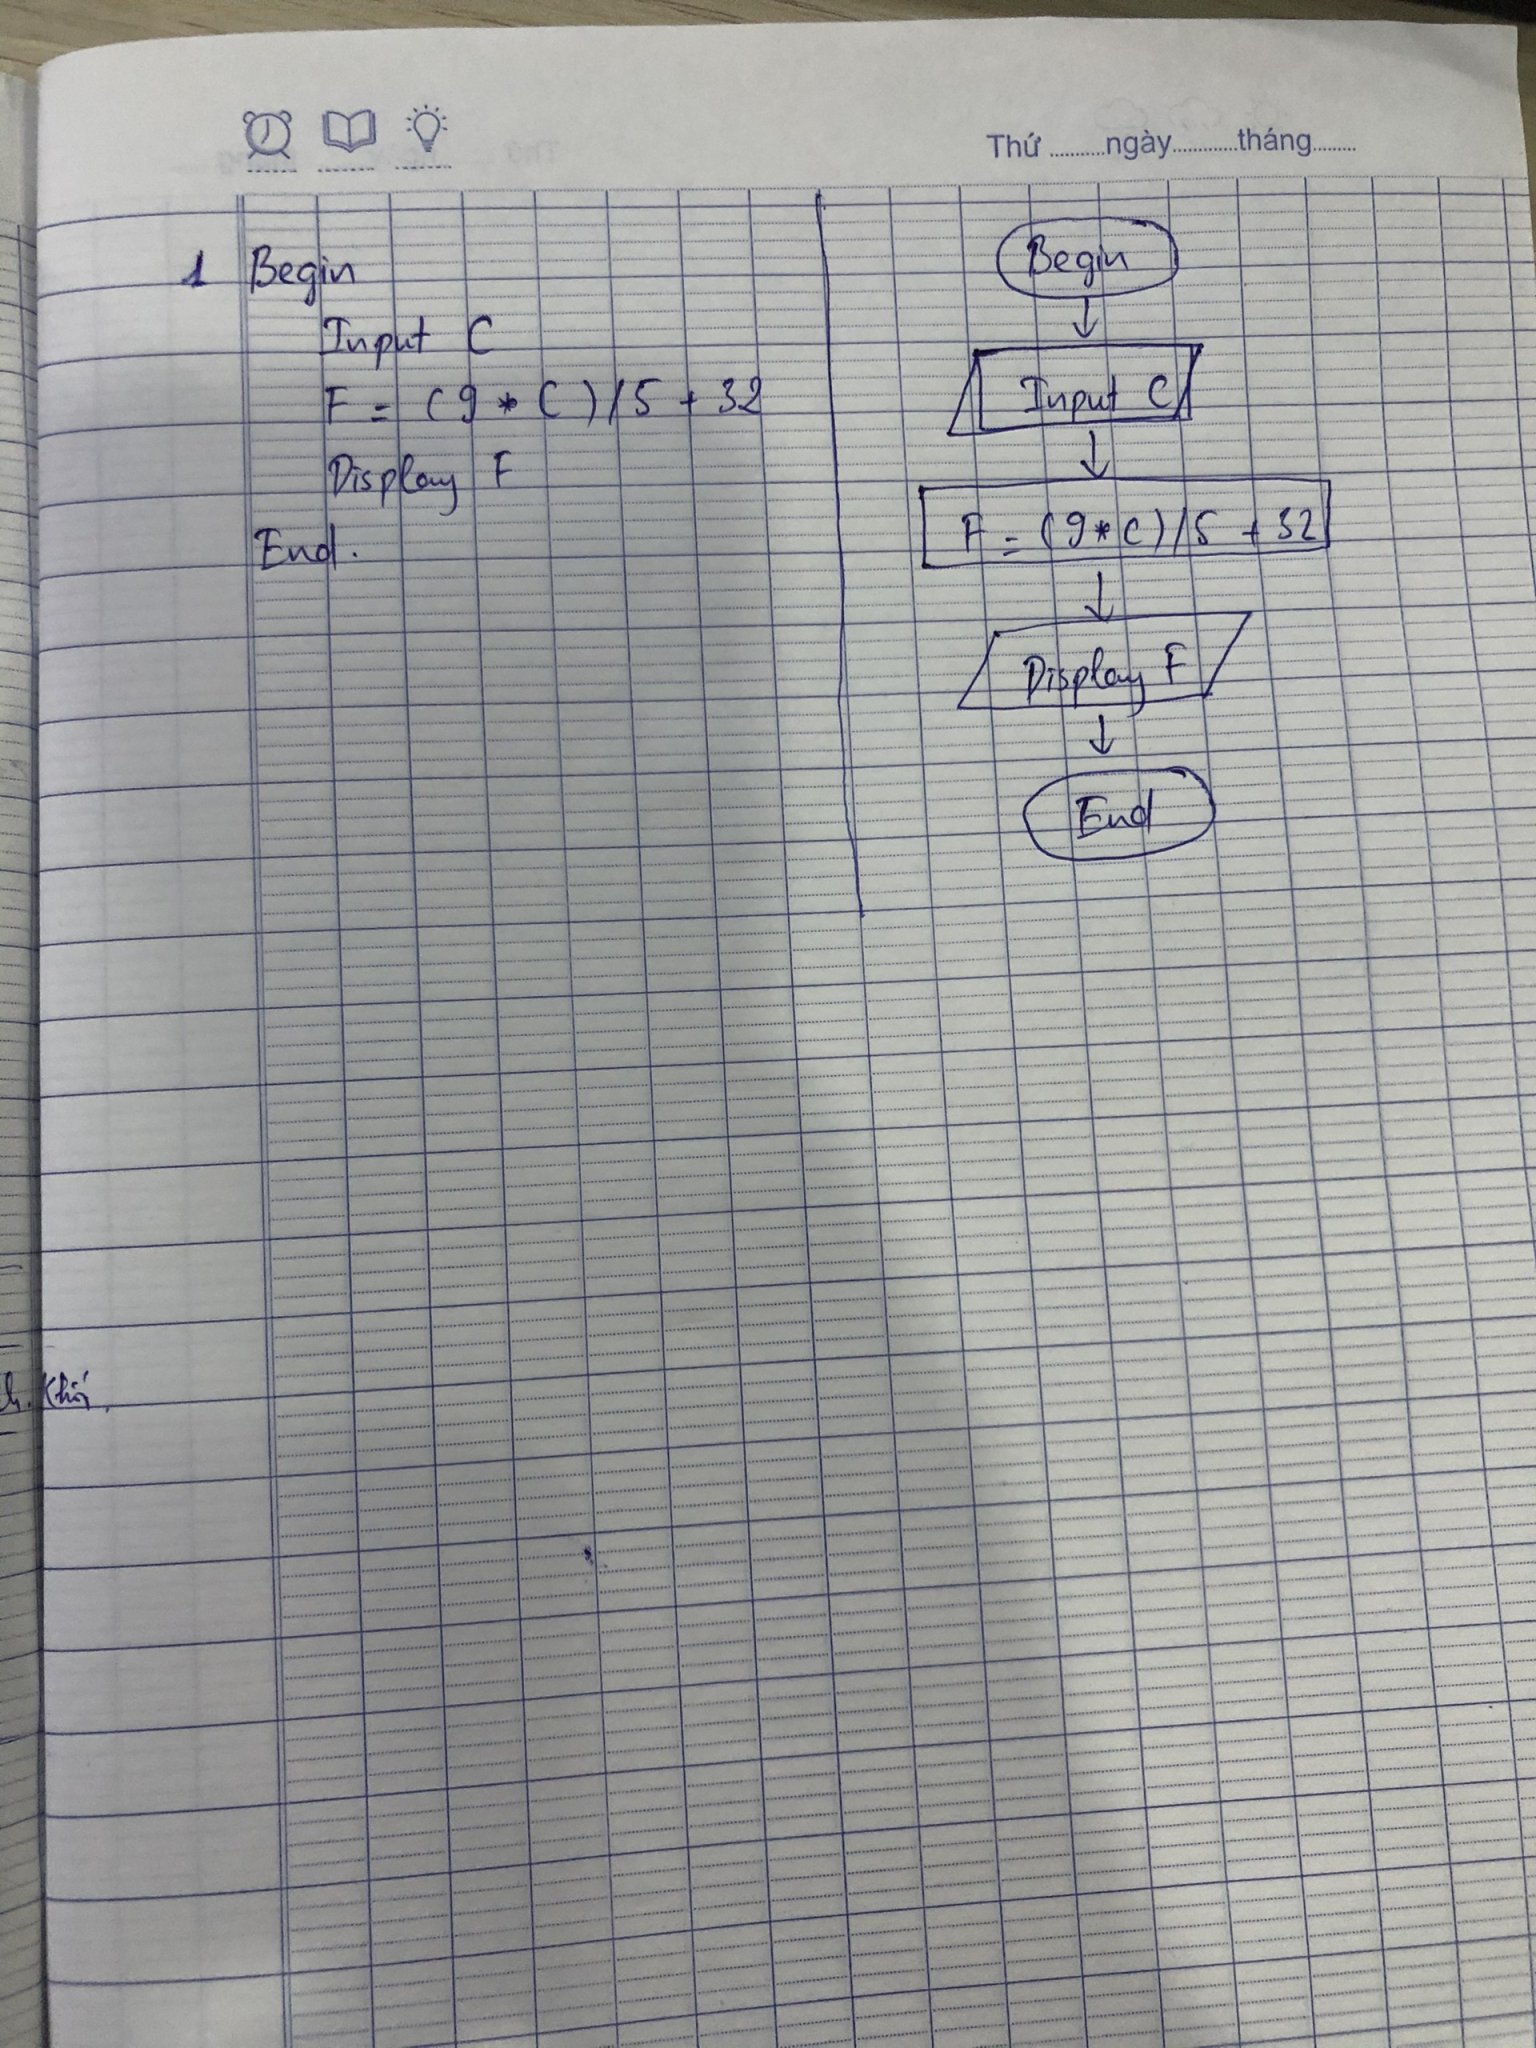 Thứ ..........ngày............tháng........
1 Begin
Input C
F = (9 * C) / 5 + 32
Display F
End.
Begin
Input C
F = (9 * C) / 5 + 32
Display F
End
khói